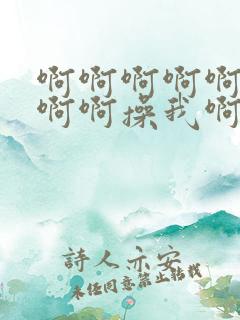 啊啊啊啊啊
啊啊操我啊
詩人示安
未经同意禁止转载